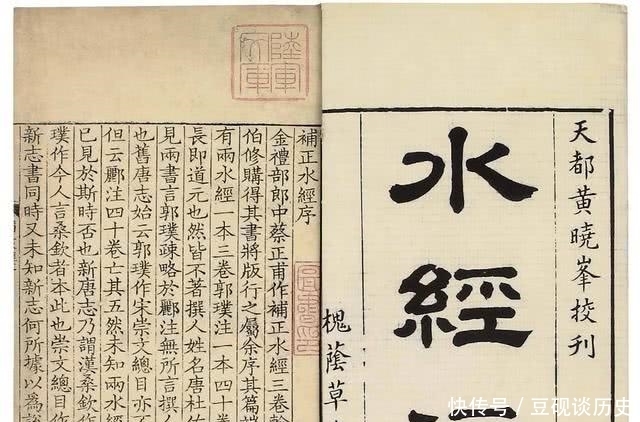 天都黄曉峯挍刊
水經
槐蔭草
補正水經序
金禮部郎中蔡正甫作補正水經三卷
伯修購得其書將版行之屬余序其篇端
有兩水經一本三卷郭璞注一本四十
長即道元也然皆不著撰人姓名唐杜
見兩書言郭璞疎略於酈注無所言撰人
也舊唐志始云郭璞作宋崇文總目亦
但云酈注四十卷亡其五然未知兩水
已見於斯時否也新唐志乃謂漢桑欽
璞作今人言桑欽者本此也崇文總目作
新志書同時又未知新志何所據以為說
快传号/豆砚谈历史